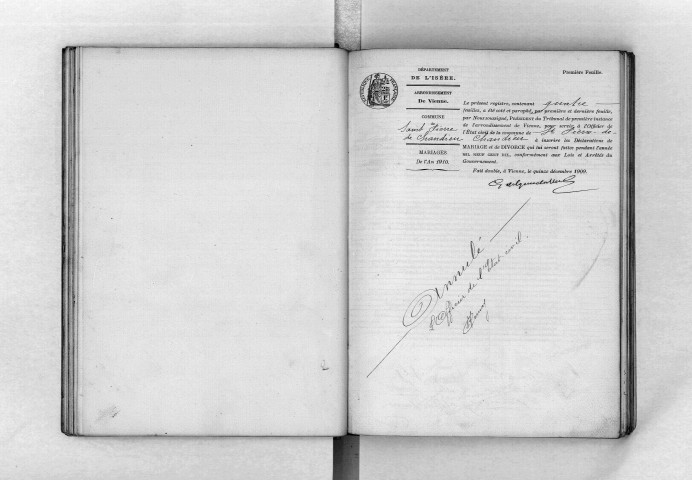 DÉPARTEMENT
DE L'ISÈRE.
ARRONDISSEMENT
De Vienne.
COMMUNE
Saint Pierre
de Chandieu
MARIAGES
De l'An 1910.
Première Feuille.
Le présent registre, contenant quinze
feuilles, a été coté et paraphé, par première et dernière feuille,
par Nous soussigné, Président du Tribunal de première instance
de l'arrondissement de Vienne, pour servir à l'Officier de
l'État civil de la commune de St Pierre-de-
Chandieu à inscrire les Déclarations de
MARIAGE et de DIVORCE qui lui seront faites pendant l'année
MIL NEUF CENT DIX, conformément aux Lois et Arrêtés du
Gouvernement.
Fait double, à Vienne, le quinze décembre 1909.
Annulé
L'Officier de l'État civil.